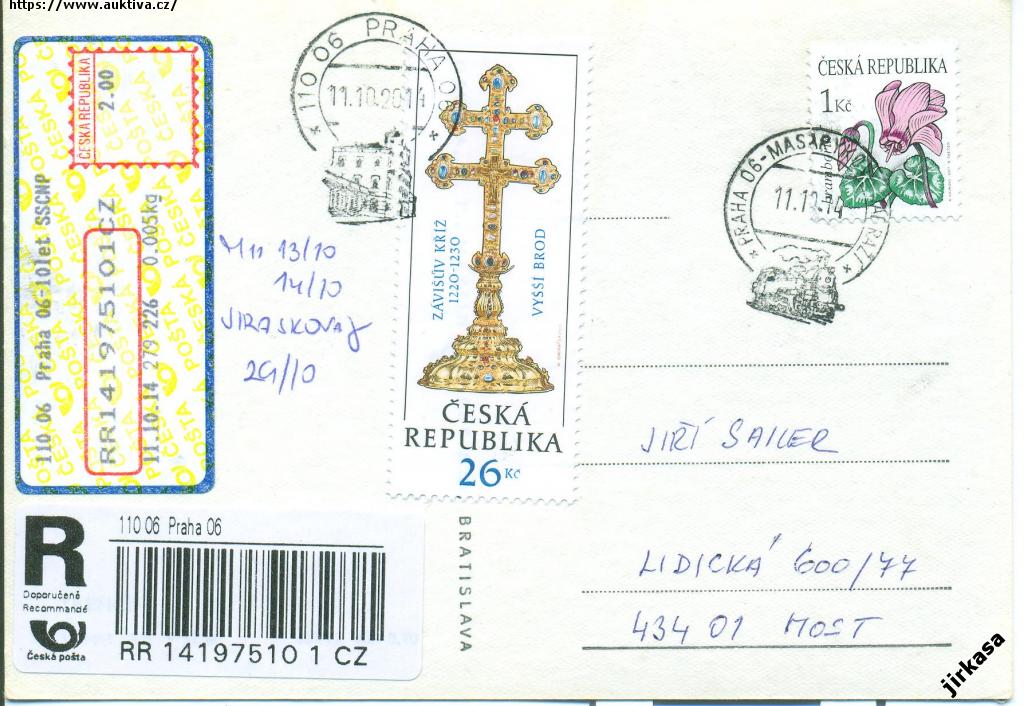 https://www.auktiva.cz/
ČESKÁ REPUBLIKA
2.00
110 06 Praha 06-10let SSCNP
RR141975101CZ
11.10.14 279 226 0.005kg
ČESKÁ POŠTA
110 06 PRAHA 06
11.10.2014
ZÁVIŠŮV KŘÍŽ
1220-1230
VYŠŠÍ BROD
ČESKÁ
REPUBLIKA
26 Kč
ČESKÁ REPUBLIKA
1 Kč
PRAHA 06-MASARY
11.10.14
13/10
14/10
JIRASKOVA
29/10
JIŘÍ SAILER
LIDICKÁ 600/77
434 01 MOST
BRATISLAVA
R
110 06 Praha 06
Doporučeně
Recommandé
Česká pošta
RR 14197510 1 CZ
jirkasa